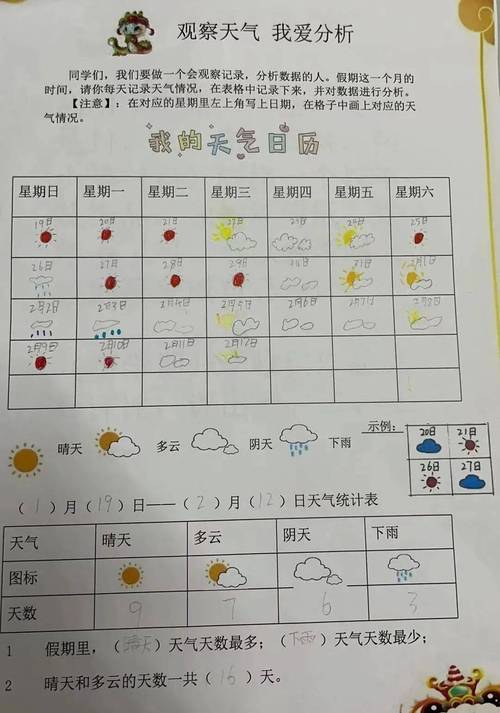 观察天气 我爱分析
同学们，我们要做一个会观察记录，分析数据的人。假期这一个月的
时间，请你每天记录天气情况，在表格中记录下来，并对数据进行分析。
【注意】：在对应的星期里左上角写上日期，在格子中画上对应的天
气情况。
我的天气日历
星期日 星期一 星期二 星期三 星期四 星期五 星期六
19日 20日 21日 22日 23日 24日 25日
26日 27日 28日 29日 31日 2月1日
2月2日 2月3日 2月4日 2月5日 2月6日 2月7日
2月9日 2月10日 2月11日 2月12日
晴天 多云 阴天 下雨 示例：
20日 21日
26日 27日
（1）月（19）日——（2）月（12）日天气统计表
天气 晴天 多云 阴天 下雨
图标
天数 9 7 6 3
1 假期里，（晴天）天气天数最多；（下雨）天气天数最少；
2 晴天和多云的天数一共（16）天。